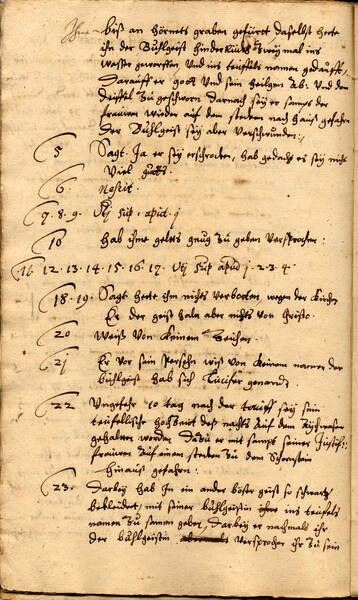 biß an Hörnets graben gefüert daselbst hette
ihn der Buhlgeist hinderrückhs Zweymal ins
wasser geworffen Und ins teüffels namen gedaufft,
darauff er gott Und sein heilgen ab: Und dem
deüffel Zu geschworn darnach sey er sampt der
frauwen wieder auf dem stecken nach hauß gefahren
der Buhlgeist sey aber verschwunden:
5 Sagt. Ja er sey erschrocken, hab gedacht es sey nicht
viel guets.
6. nescit.
7. 8. 9. Utj sup. apud. j
10 hab ihme gelts gnug Zu geben versprochen:
11. 12. 13. 14. 15. 16. 17. Utj sup apud j. 2. 3. 4.
18. 19. Sagt hette ihm nichts verbotten, wegen der Kirchen
Er der geist halt aber nichts von Christo.
20 Weiß von keinem Zeichen.
21 Er vor sein Persohn wiß von keinem namen der
buhlgeist hab sich Lucifer genandt.
22 Ungefahr 10 tag nach der tauff sey sein
teüffellische hochzeit des nachts auf dem
gehalten worden dazu er mit sampt seiner
frauwen auf einem stecken Zu dem Schornstein
hinauß gefahren:
23. Darbey hab In ein ander böser geist so schwartz
bekleidet, mit seiner buhlgeistin ins teüfels
namen Zu samen geben, darbey er nachmals ihr
der buhlgeistin versprochen ihr Zu sein